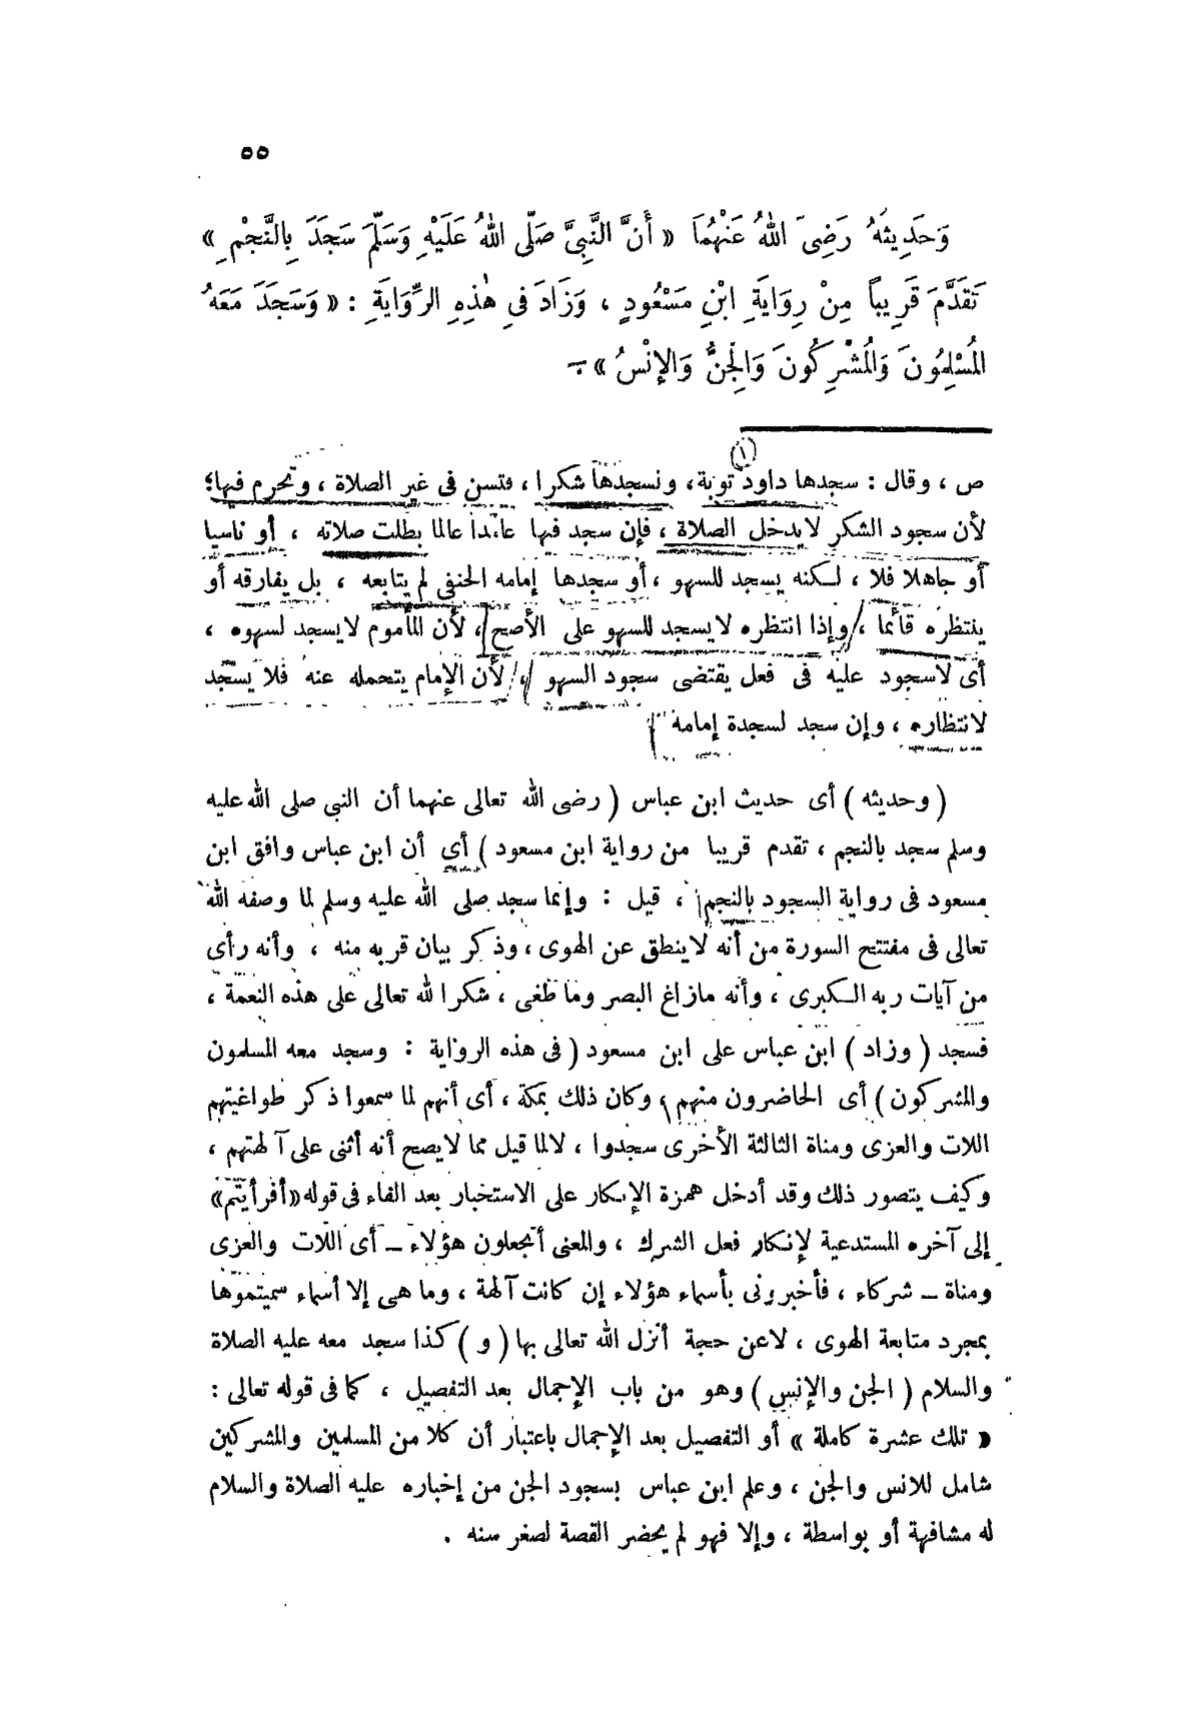 ٥٥
وَحَدِيثَهُ رَضِىَ اللهُ عَنْهُمَا « أَنَّ النَّبِىَّ صَلَّى اللهُ عَلَيْهِ وَسَلَّمَ سَجَدَ بِالنَّجْمِ »
تَقَدَّمَ قَرِيباً مِنْ رِوَايَةِ ابْنِ مَسْعُودٍ ، وَزَادَ فِى هٰذِهِ الرِّوَايَةِ : « وَسَجَدَ مَعَهُ
الْمُسْلِمُونَ وَالْمُشْرِكُونَ وَالْجِنُّ وَالإِنْسُ » .
(١)
ص ، وقال : سجدها داود توبة، ونسجدها شكرا ، فتسن فى غير الصلاة ، وتحرم فيها؛
لأن سجود الشكر لايدخل الصلاة ، فإن سجد فيها عامدا عالما بطلت صلاته ، أو ناسيا
أو جاهلا فلا ، لكنه يسجد للسهو ، أو سجدها إمامه الحنفى لم يتابعه ، بل يفارقه أو
ينتظره قائما ، وإذا انتظره لايسجد للسهو على الأصح ، لأن المأموم لايسجد لسهوه ،
أى لاسجود عليه فى فعل يقتضى سجود السهو ، لأن الإمام يتحمله عنه فلا يسجد
لانتظاره ، وإن سجد لسجدة إمامه
( وحديثه ) أى حديث ابن عباس ( رضى الله تعالى عنهما أن النبى صلى الله عليه
وسلم سجد بالنجم ، تقدم قريبا من رواية ابن مسعود ) أى أن ابن عباس وافق ابن
مسعود فى رواية السجود بالنجم ، قيل : وإنما سجد صلى الله عليه وسلم لما وصفه الله
تعالى فى مفتتح السورة من أنه لاينطق عن الهوى ، وذكر بيان قربه منه ، وأنه رأى
من آيات ربه الكبرى ، وأنه مازاغ البصر وما طغى ، شكرا لله تعالى على هذه النعمة ،
فسجد ( وزاد ) ابن عباس على ابن مسعود ( فى هذه الرواية : وسجد معه المسلمون
والمشركون ) أى الحاضرون منهم ، وكان ذلك بمكة ، أى أنهم لما سمعوا ذكر طواغيتهم
اللات والعزى ومناة الثالثة الأخرى سجدوا ، لالما قيل مما لايصح أنه أثنى على آلهتهم ،
وكيف يتصور ذلك وقد أدخل همزة الإنكار على الاستخبار بعد الفاء فى قوله «أفرأيتم»
إلى آخره المستدعية لإنكار فعل الشرك ، والمعنى أتجعلون هؤلاء ــ أى اللات والعزى
ومناة ــ شركاء ، فأخبرونى بأسماء هؤلاء إن كانت آلهة ، وما هى إلا أسماء سميتموها
بمجرد متابعة الهوى ، لاعن حجة أنزل الله تعالى بها ( و ) كذا سجد معه عليه الصلاة
والسلام ( الجن والإنس ) وهو من باب الإجمال بعد التفصيل ، كما فى قوله تعالى :
« تلك عشرة كاملة » أو التفصيل بعد الإجمال باعتبار أن كلا من المسلمين والمشركين
شامل للانس والجن ، وعلم ابن عباس بسجود الجن من إخباره عليه الصلاة والسلام
له مشافهة أو بواسطة ، وإلا فهو لم يحضر القصة لصغر سنه .